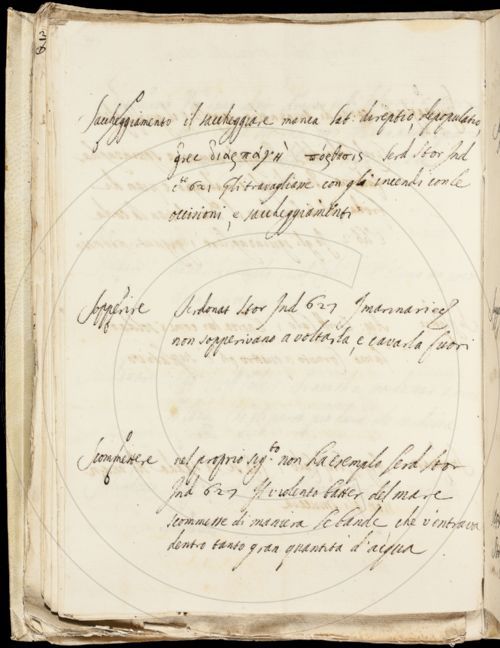 Saccheggiamento il saccheggiare manca lat. direptio, depopulatio,
grec διαςπάγὴ πόςθισις Serd Stor Ind
c.te 627 gli travagliava con gli incendi con le
occisioni, e saccheggiamenti
Sopperire Serdonat Stor Ind 627 I marinari
non sopperivano a voltarla, e cavarla fuori
Scommettere nel proprio sig.to non ha esemplo Serd Stor
Ind 627 Il violento batter del mare
scommesse di maniera le bande che v'entrava
dentro tanto gran quantità d'acqua